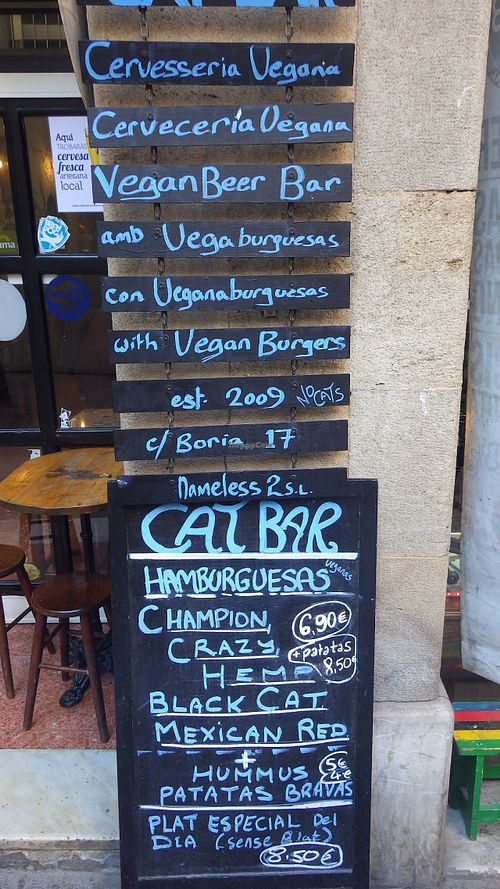 CAT BAR
Cervesseria Vegana
Cervecería Vegana
Vegan Beer Bar
amb Vegaburguesas
con Veganaburguesas
with Vegan Burgers
est. 2009 No CATS
c/ Boria 17
Nameless 2 S.L.
CAT BAR
HAMBURGUESAS
veganas
CHAMPION, 6,90€
CRAZY, + patatas
HEMP 8,50€
BLACK CAT
MEXICAN RED
+
HUMMUS 5€
PATATAS BRAVAS 4€
PLAT ESPECIAL Del
DIA (sense Blat)
8.50€
Aquí
TROBARÀS
cervesa
fresca
artesana
local